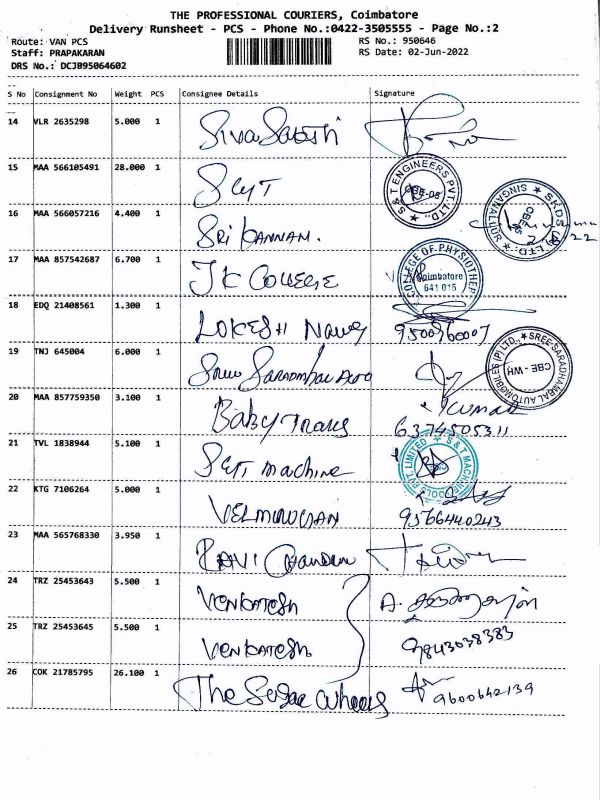 THE PROFESSIONAL COURIERS, Coimbatore
Delivery Runsheet - PCS - Phone No.:0422-3505555 - Page No.:2
Route: VAN PCS
RS No.: 950646
Staff: PRAPAKARAN
RS Date: 02-Jun-2022
DRS No.: DCJB95064602
S No Consignment No Weight PCS Consignee Details Signature
14 VLR 2635298 5.000 1 Siva Sakthi
15 MAA 566105491 28.000 1 S&T
S & T ENGINEERS PVT. LTD., CBE-05
16 MAA 566057216 4.400 1 SRI KANNAM.
SINGANALLUR
17 MAA 857542687 6.700 1 JK COLLEGE
COLLEGE OF PHYSIOTHER
Coimbatore
641 016
18 EDQ 21408561 1.300 1 LOKESH
9500960007
19 TNJ 645004 6.000 1
SREE SARADHAMBAL AUTOMOBILES (P) LTD., CBE - WH
20 MAA 857759350 3.100 1 Baby Trans Kumar
6374505311
21 TVL 1838944 5.100 1 S&T machine
S & T MACHINE TOOLS PVT. LIMITED
22 KTG 7106264 5.000 1 VELMURUGAN 9566440243
23 MAA 565768330 3.950 1 RAVI
24 TRZ 25453643 5.500 1 VENKATESH A.
25 TRZ 25453645 5.500 1 VENKATESH 9843038383
26 COK 21785795 26.100 1 The Wheels 9600642139